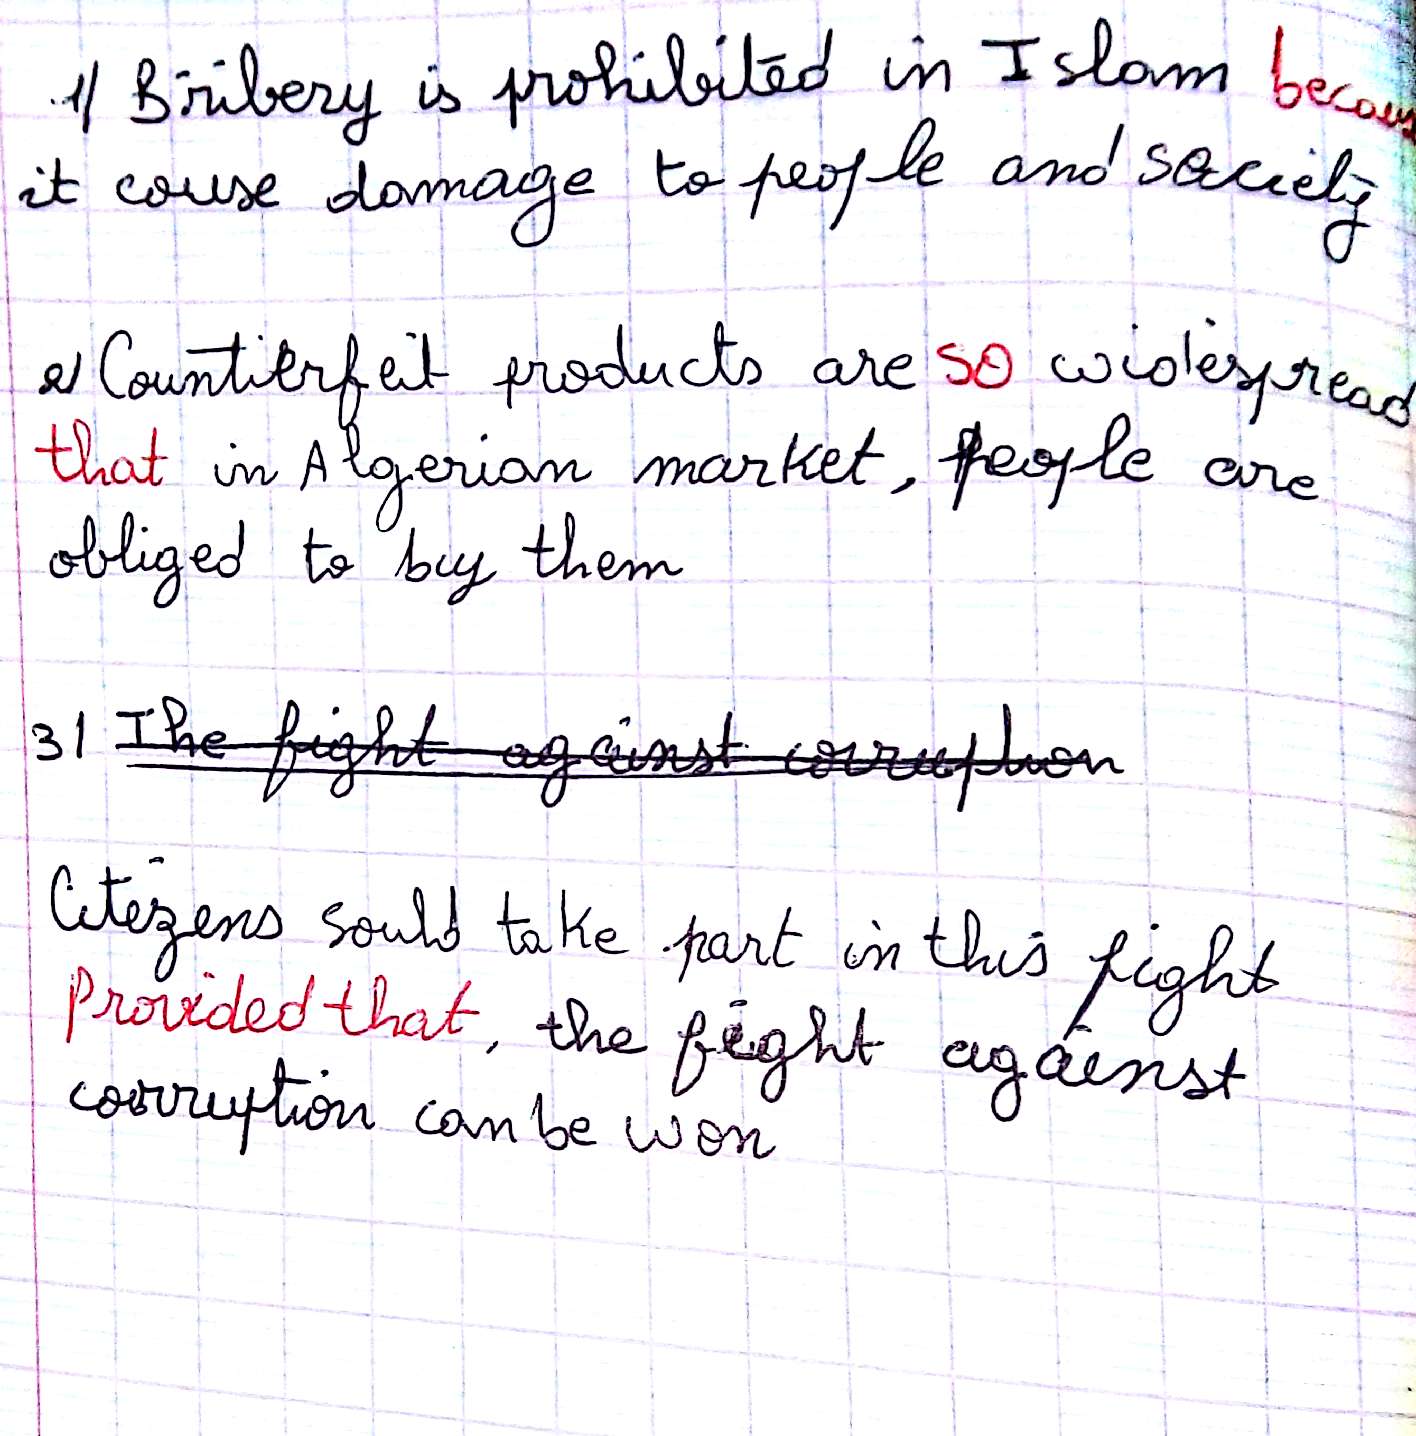 1/ Bribery is prohibited in Islam becaus
it couse damage to people and society
2/ Counterfeit products are so widespread
that in Algerian market, people are
obliged to buy them
3/ The fight against corruption
Citezens sould take part in this fight
Provided that, the fight against
corruption can be won